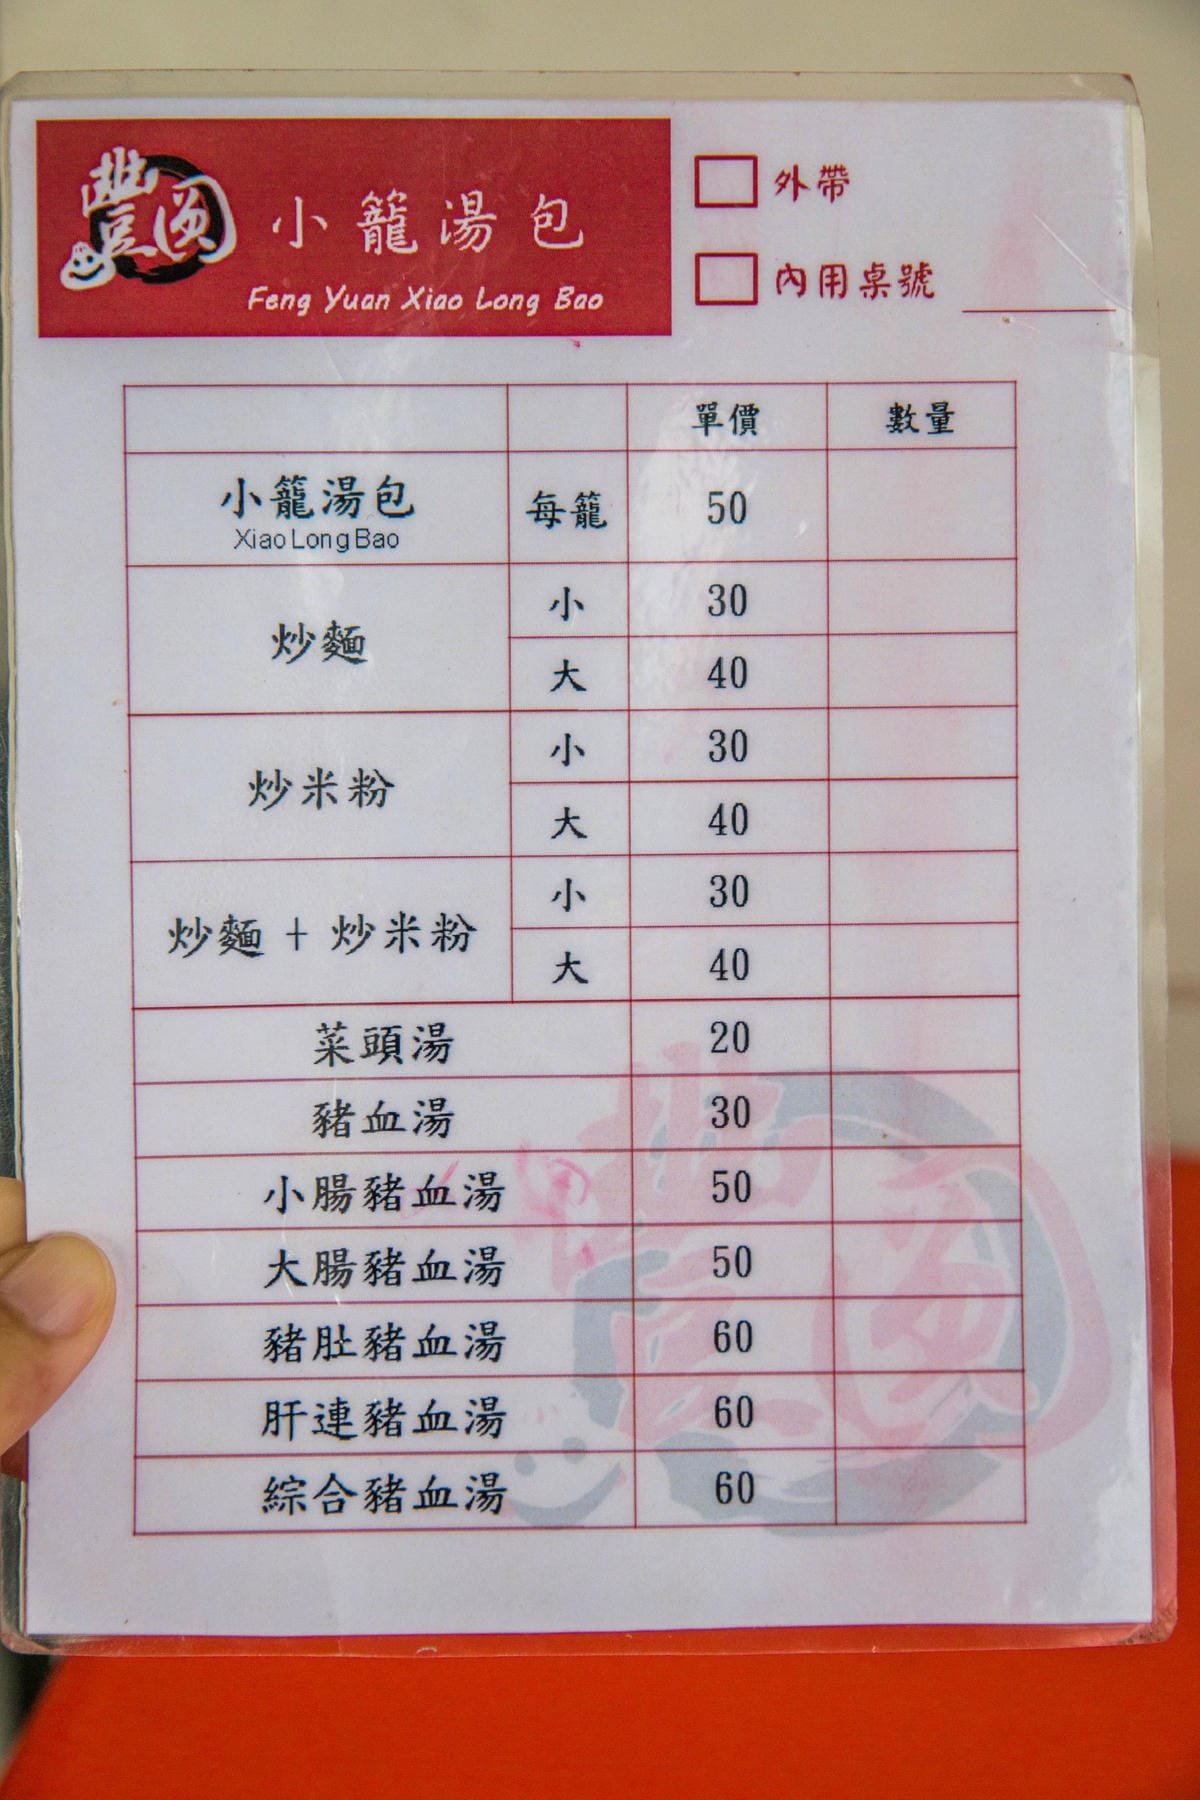 豐圓 小籠湯包
Feng Yuan Xiao Long Bao
外帶
內用桌號
單價 數量
小籠湯包 每籠 50
Xiao Long Bao
炒麵 小 30
大 40
炒米粉 小 30
大 40
炒麵 + 炒米粉 小 30
大 40
菜頭湯 20
豬血湯 30
小腸豬血湯 50
大腸豬血湯 50
豬肚豬血湯 60
肝連豬血湯 60
綜合豬血湯 60
豐圓